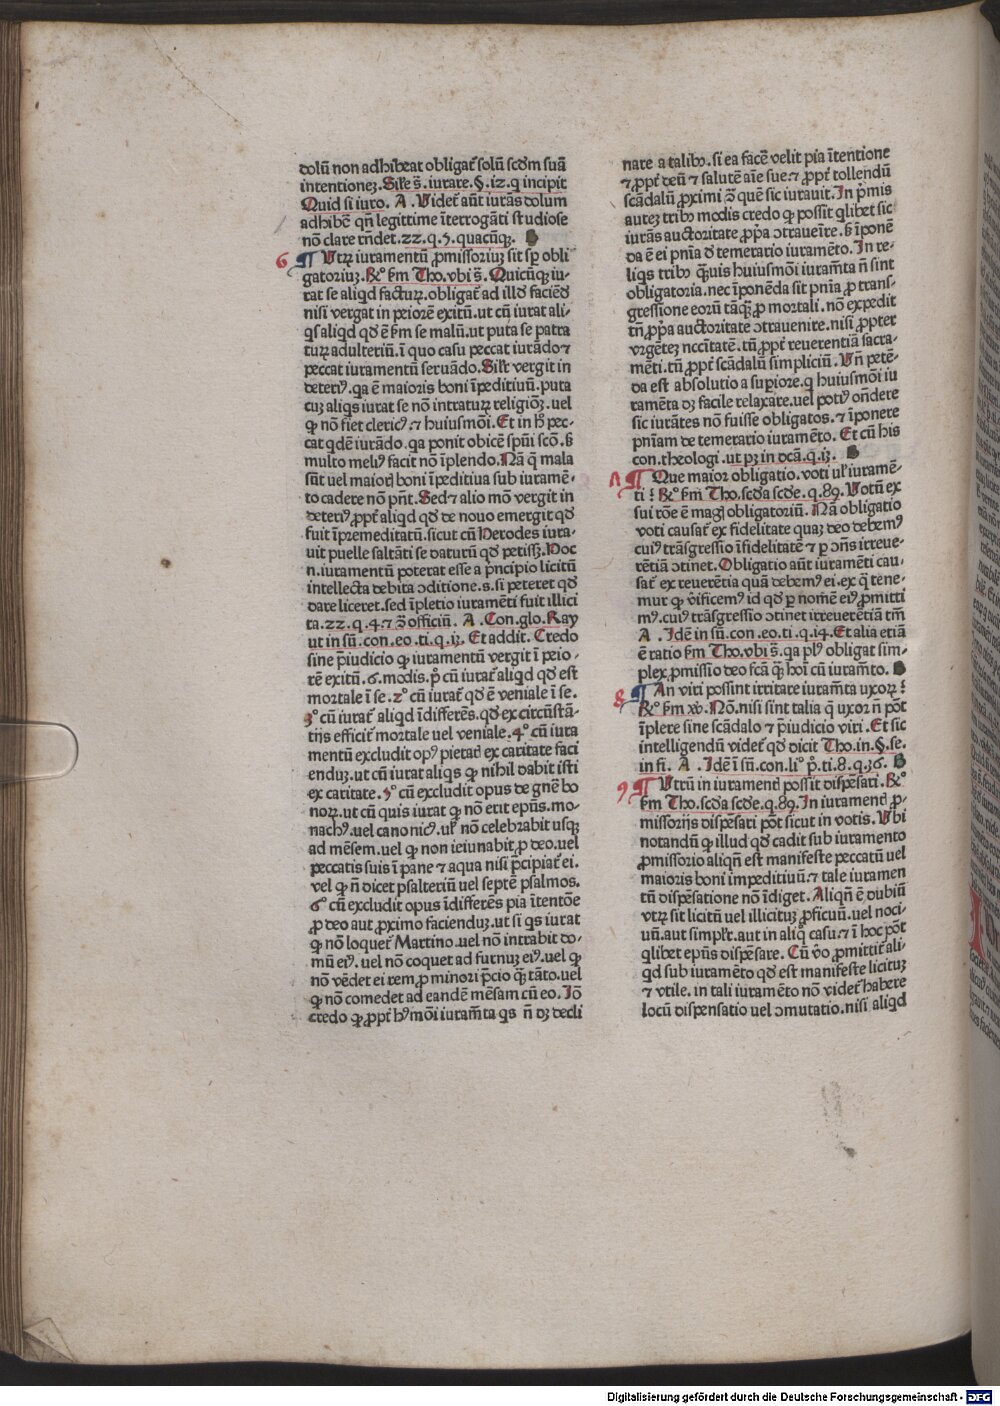 dolū non adhibeat obligat᷑ solū scd̄m suā
intentionez. Sil᷑e s̄. iurare. §. iz. q incipit
Quid si iuro. A. Videt᷑ aūt iurās dolum
adhibē qn̄ legittime īterrogāti studiose
nō clare rn̄det. 22. q. 5. quacūqꝫ. B
6 ¶ Vtrꝝ iuramentū ꝓmissoriuꝫ sit sꝑ obli
gatoriuꝫ. R̄o ẜm Tho. vbi s̄. Quicūqꝫ iu-
rat se aliqd facturꝝ. obligat᷑ ad illd faciēd
nisi vergat in peiorē exitū. ut cū iurat ali-
qs aliqd qd ē ẜm se malū. ut puta se patra
turꝝ adulteriū. ī quo casu peccat iurādo ⁊
peccat iuramentū seruādo. Sil᷑r vergit in
deteriꝰ. qa ē maioris boni īpeditiuū. puta
cuꝫ aliqs iurat se nō intraturꝝ religiōꝫ. uel
ꝙ nō fiet clericꝰ. ⁊ huiusmōi. Et in hꝰ pec-
cat qdē iurādo. qa ponit obicē spūi scō. ẜ
multo meliꝰ facit nō īplendo. Nā q̄ mala
sūt uel maioꝝ boni īpeditiua sub iuramē-
to cadere nō pn̄t. Sed ⁊ alio mō vergit in
deteriꝰ ꝓpt᷑ aliqd qd de nouo emergit qd
fuit īpremeditatū. sicut cū Herodes iura-
uit puelle saltāti se daturū qd petissꝫ. Hoc
n. iuramentū poterat esse a pͥncipio licitū
intellecta debita ɔditione. s. si peteret qd
dare liceret. sed īpletio iuramēti fuit illici
ta. 22. q. 4. ⁊ 3 officiū. A. Con. glo. Ray
ut in sū. con. eo. ti. q. iz. Et addit. Credo
sine p̄iudicio ꝙ iuramentū vergit ī peio-
rē exitū. 6. modis. pͦ cū iurat᷑ aliqd qd est
mortale ī se. 2º cū iurat᷑ qd ē veniale ī se.
3º cū iurat᷑ aliqd īdifferēs. qd ex circūstā-
tijs efficit᷑ mortale uel veniale. 4º cū iura
mentū excludit opꝰ pietatꝭ ex caritate faci
enduꝫ. ut cū iurat aliqs ꝙ nihil dabit isti
ex caritate. 5º cū excludit opus de gn̄e bo
norꝝ. ut cū quis iurat ꝙ nō erit ep̄us. mo-
nachꝰ. uel canonicꝰ. ul᷑ nō celebrabit usqꝫ
ad mēsem. uel ꝙ non ieiunabit ꝓ deo. uel
peccatis suis ī pane ⁊ aqua nisi p̄cipiat᷑ ei.
vel ꝙ n̄ dicet psalteriū uel septē psalmos.
6º cū excludit opus īdifferēs pia ītentōe
ꝓ deo aut ꝓximo facienduꝫ. ut si qs iurat
ꝙ nō loquet᷑ Martino. uel nō intrabit do-
mū eiꝰ. uel nō coquet ad furnuꝫ eiꝰ. uel ꝙ
nō vēdet ei rem ꝓ minori p̄cio qꝫ tāto. uel
ꝙ nō comedet ad eandē mēsam cū eo. Iō
credo ꝙ ꝓpt᷑ hꝰmōi iuram̄ta qs n̄ dꝫ decli
nare a talibꝰ. si ea facē velit pia ītentione
⁊ ꝓpt᷑ deū ⁊ salutē aīe sue. ⁊ ꝓpt᷑ tollendū
scādalū ꝓximi 3 quē sic iurauit. In pͥmis
autez tribꝰ modis credo ꝙ possit qlibet sic
iurās auctoritate ꝓpͥa ɔtrauēire. ẜ īponē
da ē ei pn̄ia d̄ temerario iuramēto. In re-
liqs tribꝰ qꝫuis huiusmōi iuram̄ta n̄ sint
obligatoria. nec īponēda sit pn̄ia ꝓ trans-
gressione eorū tāqꝫ ꝓ mortali. nō expedit
tn̄ ꝓpͥa auctoritate ɔtrauenire. nisi ꝓpter
vrgētez ncc̄itatē. tn̄ ꝓpt᷑ reuerentiā sacra-
mēti. tū ꝓpt᷑ scādalū simpliciū. Vn̄ petē-
da est absolutio a supiore. q huiusmōi iu
ramēta dꝫ facile relaxare. uel potiꝰ on̄dere
sic iurātes nō fuisse obligatos. ⁊ īponere
pn̄iam de temerario iuramēto. Et cū his
con. theologi. ut pꝫ in dc̄a. q. iz. B
Λ ¶ Que maior obligatio. voti ul᷑ iuramē-
ti? R̄o ẜm Tho. scd̄a scd̄e. q. 89. Votū ex
sui rōe ē magꝭ obligatoriū. Nā obligatio
voti causat᷑ ex fidelitate quaꝫ deo debemꝰ
cuiꝰ trāsgressio īfidelitatē ⁊ p ɔn̄s irreue-
rētiā ɔtinet. Obligatio aūt iuramēti cau-
sat᷑ ex reuerētia quā debemꝰ ei. ex q tene-
mur ꝙ v̄ificemꝰ id qd p nomē eiꝰ ꝓmitti
mꝰ. cuiꝰ trāsgressio ɔtinet irreuerētiā tm̄
A. Idē in sū. con. eo. ti. q. i4. Et alia etiā
ē ratio ẜm Tho. vbi s̄. qa plꝰ obligat sim-
plex ꝓmissio deo fc̄a qꝫ hoī cū iuram̄to. B
8 ¶ An viri possint irritare iuram̄ta uxorꝝ?
R̄o ẜm xb̄. Nō. nisi sint talia q̄ uxor n̄ pōt
īplere sine scādalo ⁊ p̄iudicio viri. Et sic
intelligendū videt᷑ qd dicit Tho. in. §. se.
in fi. A. Idē ī sū. con. liº pͥ. ti. 8. q. 36. B
9 ¶ Vtrū in iuramenꝭ possit dispēsari. R̄o
ẜm Tho. scd̄a scd̄e. q. 89. In iuramenꝭ ꝓ-
missorijs dispēsari pōt sicut in votis. Vbi
notandū ꝙ illud qd cadit sub iuramento
ꝓmissorio aliqn̄ est manifeste peccatū uel
maioris boni impeditiuū. ⁊ tale iuramen
tū dispēsatione nō īdiget. Aliqn̄ ē dubiū
vtrꝝ sit licitū uel illicituꝫ ꝓficuū. uel noci-
uū. aut simpl᷑r. aut in aliq̊ casu. ⁊ ī hoc pōt
qlibet ep̄us dispēsare. Cū v̄o ꝓmittit᷑ ali-
qd sub iuramēto qd est manifeste licituꝫ
⁊ vtile. in tali iuramēto nō videt᷑ habere
locū dispensatio uel ɔmutatio. nisi aliqd
Digitalisierung gefördert durch die Deutsche Forschungsgemeinschaft - DFG